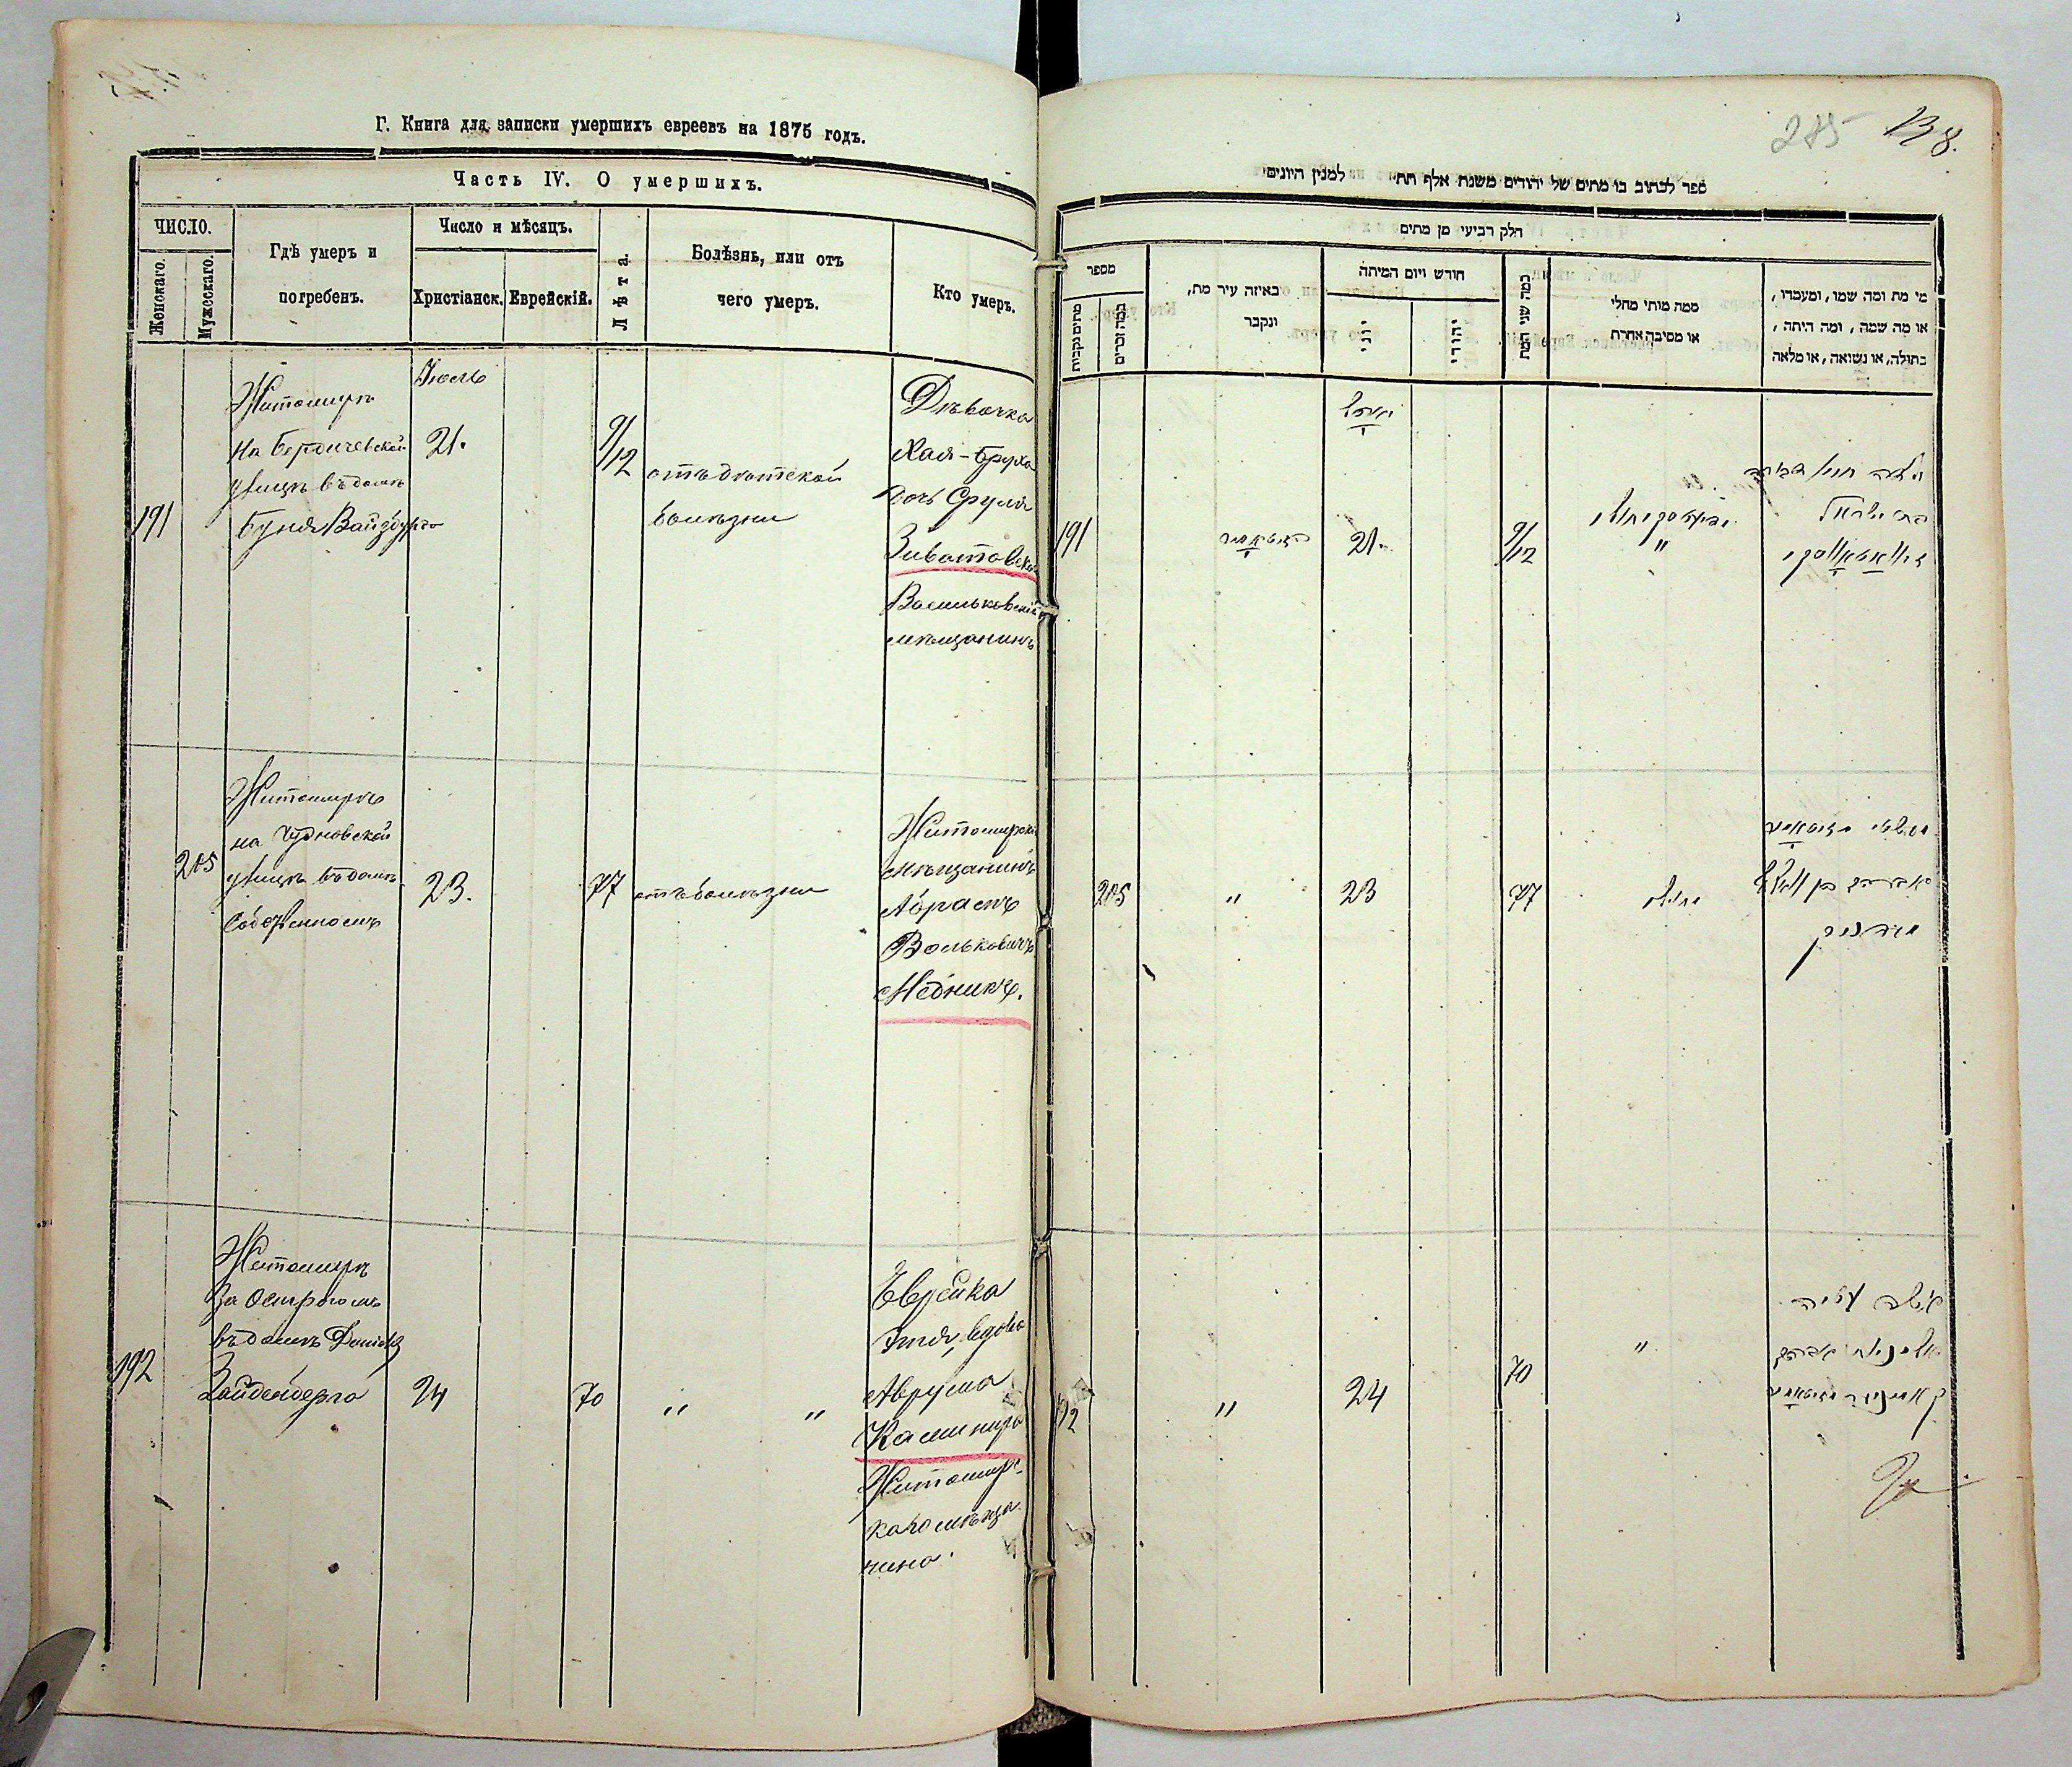 Г. Книга для записки умершихъ евреевъ на 1875 годъ.
Часть IV. О умершихъ.
ЧИСЛО.
Женскаго.
Мужескаго.
Гдѣ умеръ и
погребенъ.
Число и мѣсяцъ.
Христіанск.
Еврейскій.
Лѣта.
Болѣзнь, или отъ
чего умеръ.
Кто умеръ.
191
Житомиръ
на Бердичевской
улицѣ въ домѣ
Буня
Іюль
21.
9/12
отъ дѣтской
болѣзни
Дѣвочка
Хая-Бруха
дочь Сруля
Зиватовска
Васильковскій
мѣщанинъ
205
Житомиръ
на Чудновской
улицѣ въ домѣ
собственномъ
23.
77
отъ болѣзни
Житомирскій
мѣщанинъ
Абрамъ
Вольковичъ
Медникъ.
192
Житомиръ
За Острогомъ
въ домѣ
Зайденберга
24
70
" "
Еврейка
Этя, вдова
Аврума
Каминира
Житомирс-
каго мѣща
нина.
285
138.
ספר לכתוב בו מתים של יהודים משנת אלף תת׳ למנין היונים
חלק רביעי מן מתים
מספר
מתים נקבות
כמה זכרים
באיזה עיר מת,
ונקבר
חודש ויום המיתה
יוני
יהודי
כמה שני המת
ממה מותי מחלי
או מסיבה אחרת
מי מת ומה שמו, ומעמדו,
או מה שמה, ומה היתה,
בתולה, או נשואה, או מלאה
191
זיטאמיר
יולי
21.
9/12
"
הילדה חיי׳ ברכה
בת ישראל
205
"
23
77
חולי
אברהם בן וואלף
מידניק
192
"
24
70
"
אשה עטיה
אלמנות אברהם
קאמיניר זיטאמיר